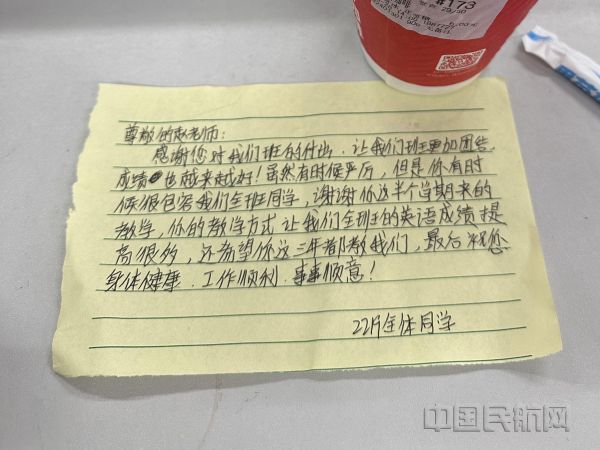 #173
尊敬的赵老师：
感谢您对我们班的付出，让我们班更加团结
成绩也越来越好！虽然有时候严厉，但是你有时
候很包容我们全班同学，谢谢你这半个学期来的
教学，你的教学方式让我们全班的英语成绩提
高很多，还希望你这三年都教我们，最后祝您
身体健康，工作顺利，事事顺意！
22班全体同学
中国民航网